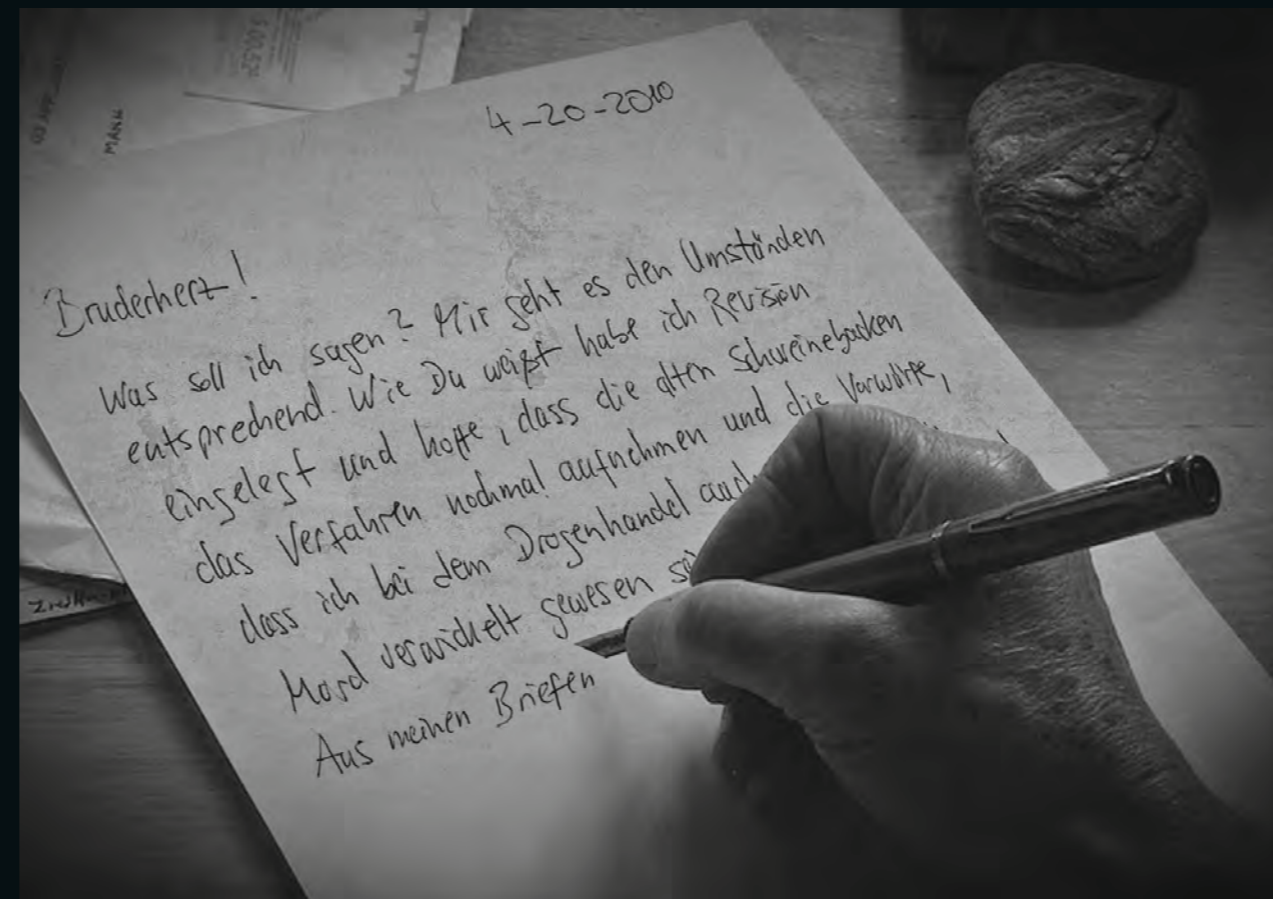 MANN
4-20-2010
Bruderherz!
Was soll ich sagen? Mir geht es den Umständen
entsprechend. Wie Du weißt habe ich Revision
eingelegt und hoffe, dass die alten Schweinebacken
das Verfahren nochmal aufnehmen und die Vorwürfe,
dass ich bei dem Drogenhandel auch
Mord verwickelt gewesen
Aus meinen Briefen